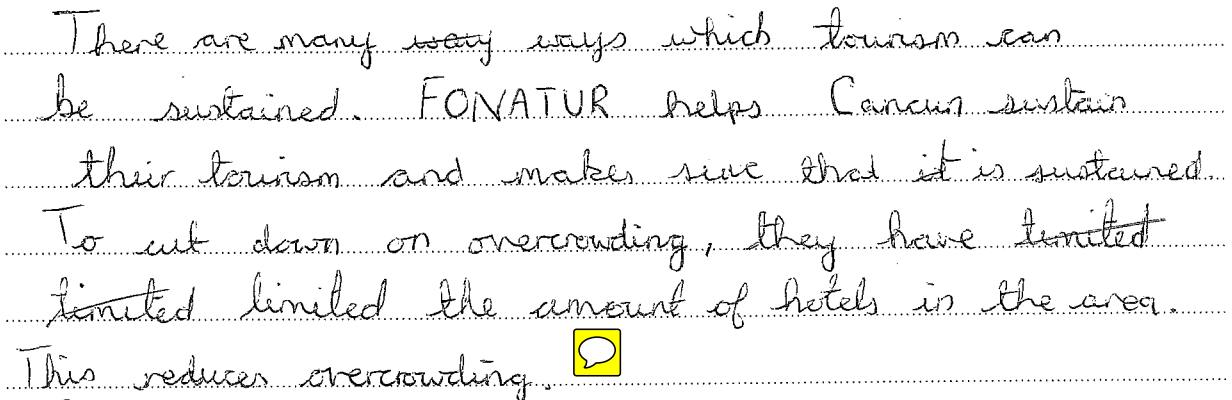 There are many way ways which tourism can
be sustained. FONATUR helps Cancun sustain
their tourism and makes sure that it is sustained.
To cut down on overcrowding, they have limited
limited limited the amount of hotels in the area.
This reduces overcrowding.